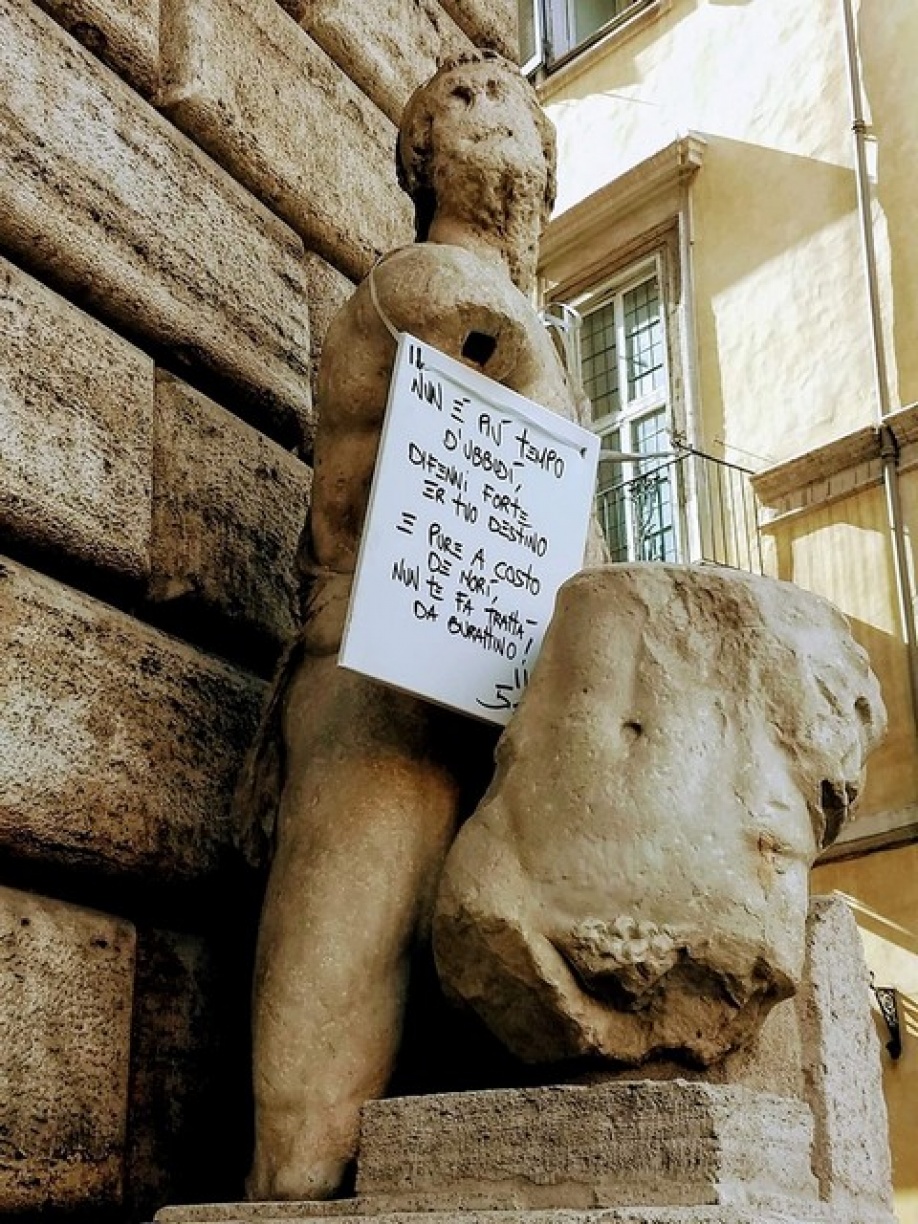 "
NUN È PIÚ TEMPO
D'UBBIDÍ,
DIFENNI FORTE
ER TUO DESTINO
E PURE A COSTO
DE MORÍ,
NUN TE FA TRATTA-
DA BURATTINO!
"